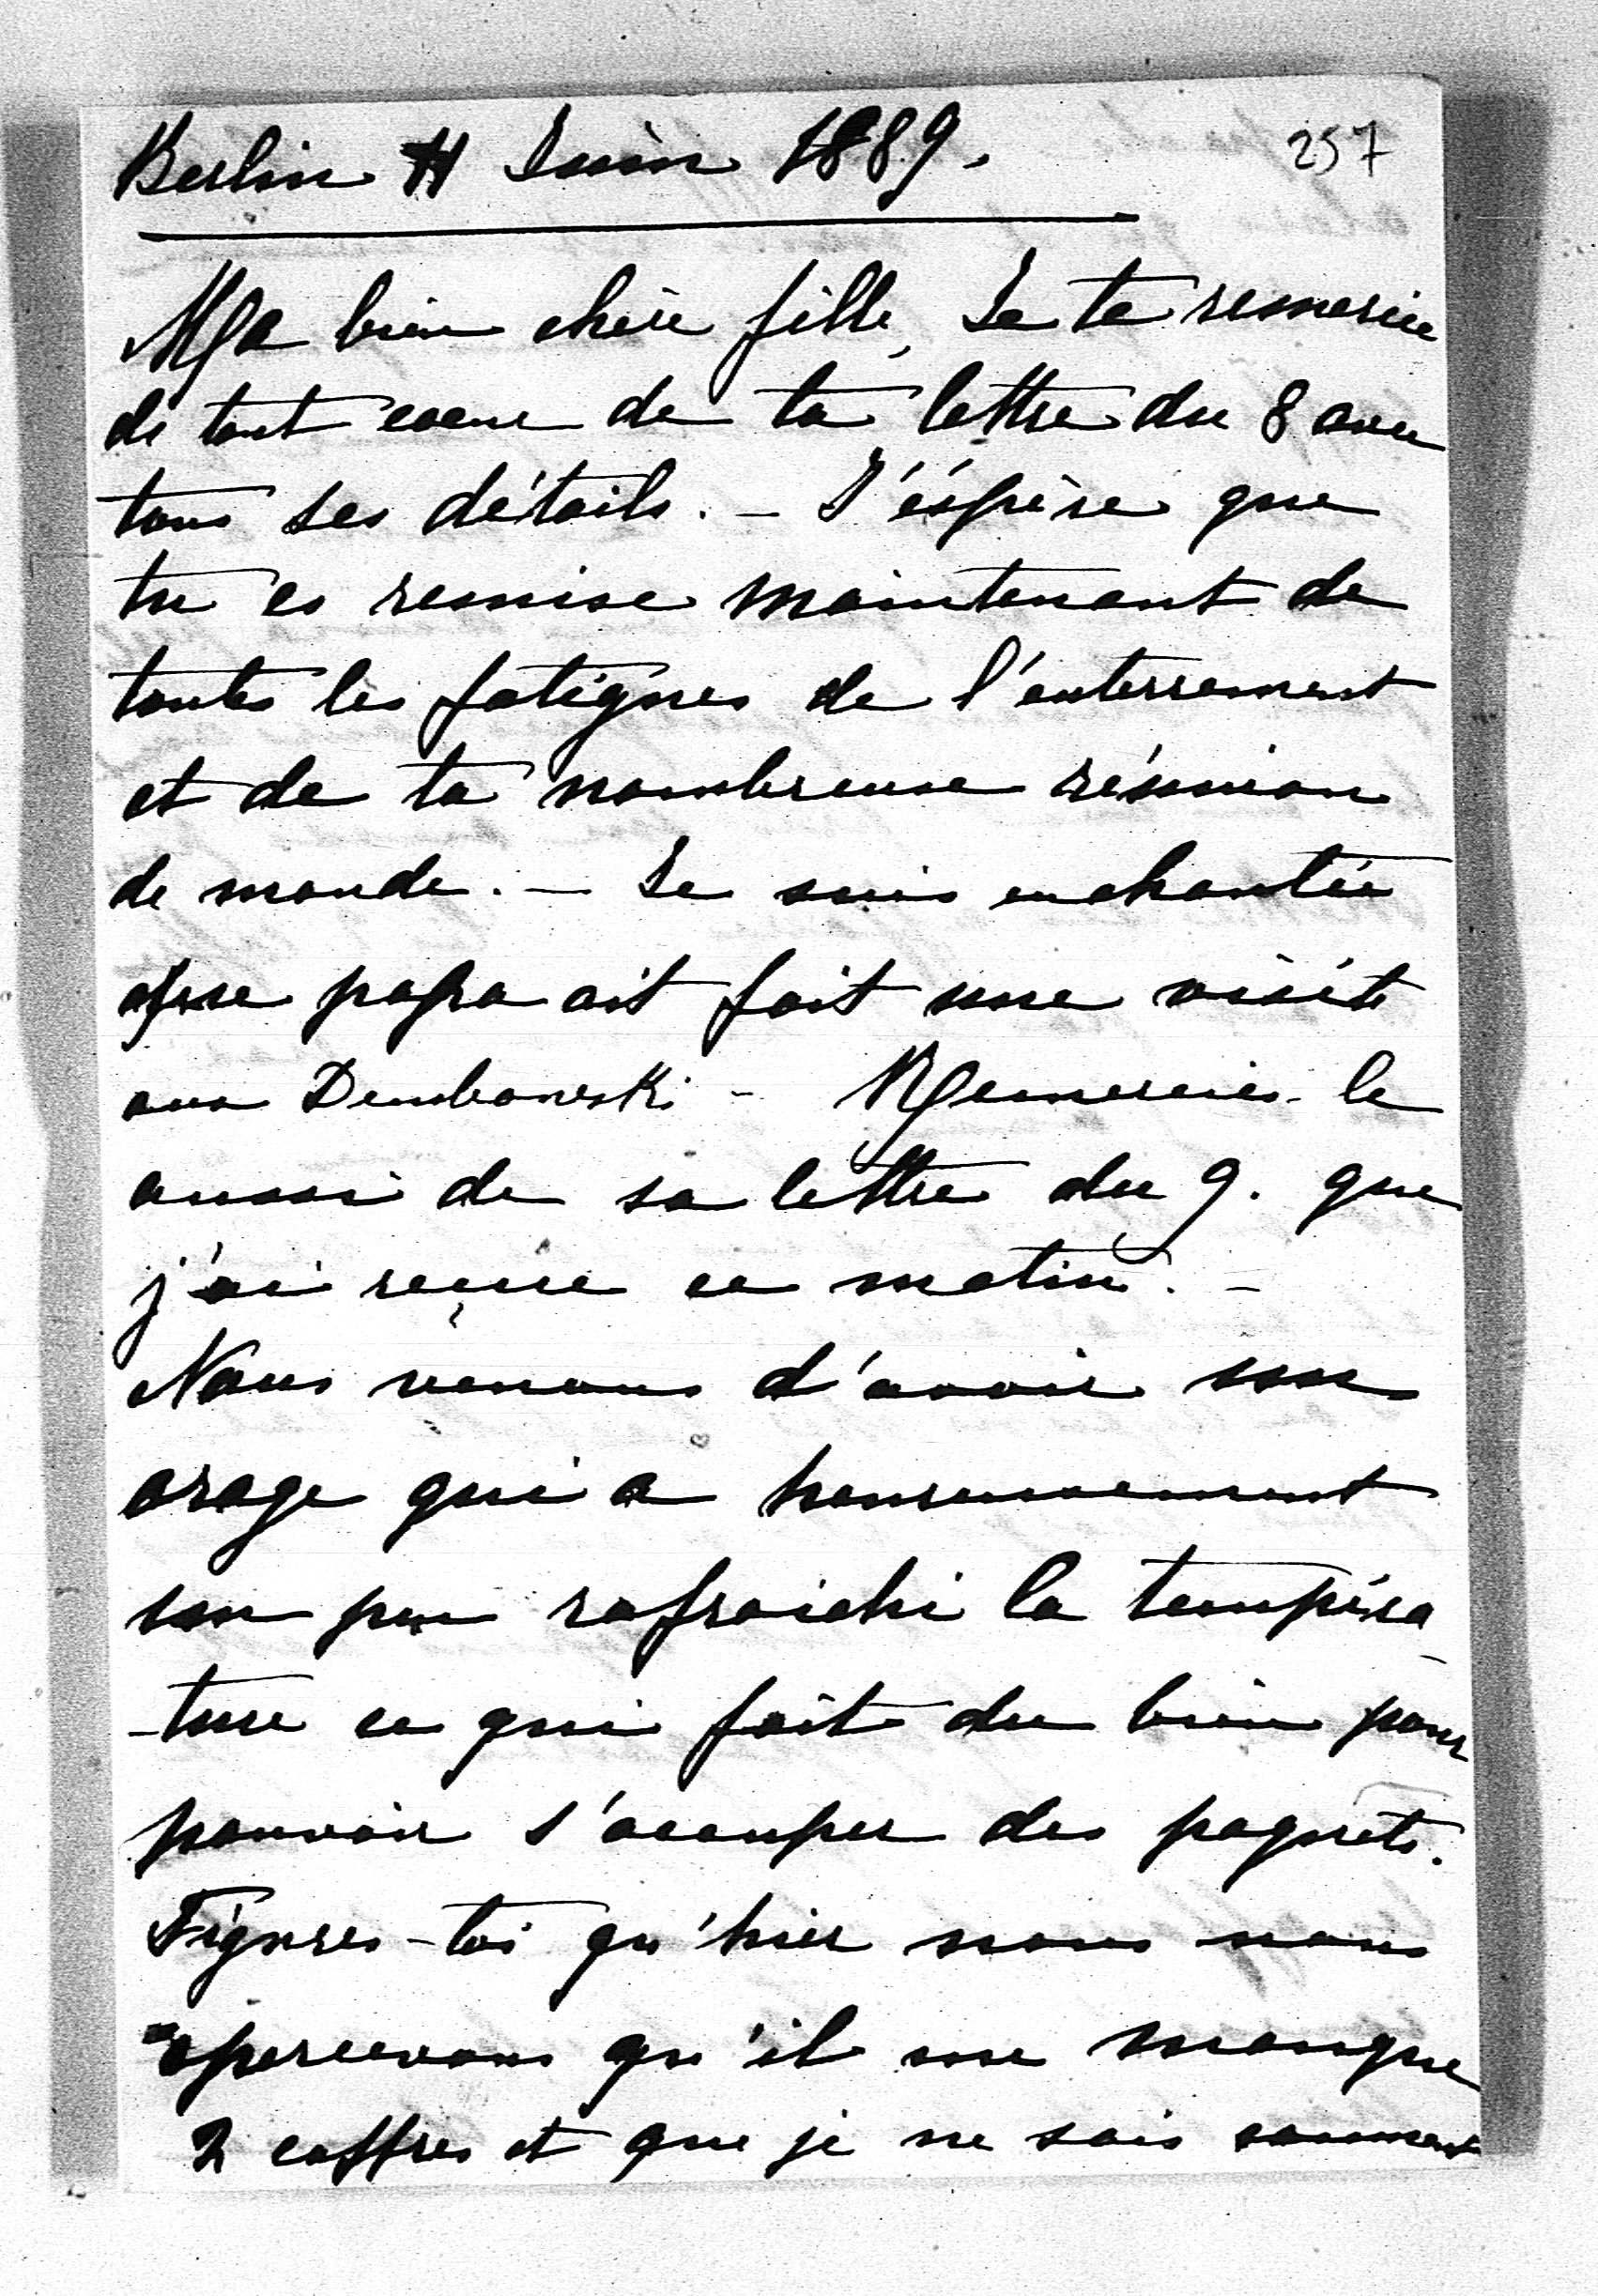 Berlin 11 Juin 1889.
257
Ma bien chère fille, Je te remercie
de tout coeur de ta lettre du 8 avec
tous ses détails. – J'éspère que
tu es remise maintenant de
toutes les fatigues de l'enterrement
et de ta nombreuse réunion
de monde. – Je suis enchantée
que papa ait fait une visite
aux Dembowski – Remercies-le
aussi de sa lettre du 9. que
j'ai reçue ce matin. –
Nous venons d'avoir un
orage qui a heureusement
un peu rafraichi la tempéra-
-ture ce qui fait du bien pour
pouvoir s'occuper des paquets.
Figures-toi qu'hier nous nous
apercevons qu'il me manque
2 coffres et que je ne sais comment